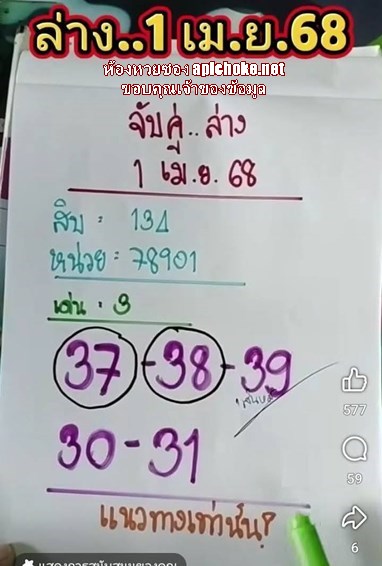 ล่าง..1 เม.ย.68
ห้องหวยซอง apichoke.net
ขอบคุณเจ้าของข้อมูล
จับคู่..ล่าง
1 เม.ย. 68
สิบ : 134
หน่วย = 78901
เด่น : 3
37-38-39
30-31
แนวทางเท่านั้น!
577
59
6